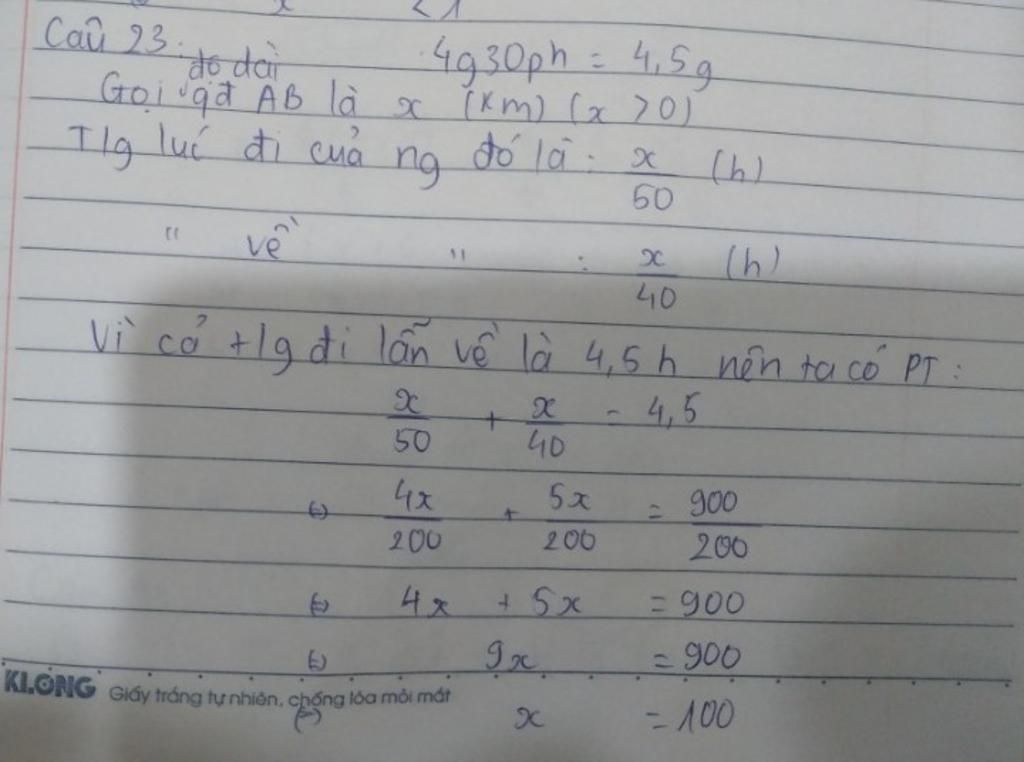 x <1
Câu 23: 4g30ph = 4,5g
độ dài
Gọi qđ AB là x (km) (x >0)
Tlg lúc đi của ng đó là: x/50 (h)
" về " : x/40 (h)
Vì cả tlg đi lẫn về là 4,5h nên ta có PT:
x/50 + x/40 = 4,5
⇔ 4x/200 + 5x/200 = 900/200
⇔ 4x + 5x = 900
⇔ 9x = 900
KLONG Giấy trắng tự nhiên, chống lóa mỏi mắt
⇔ x = 100